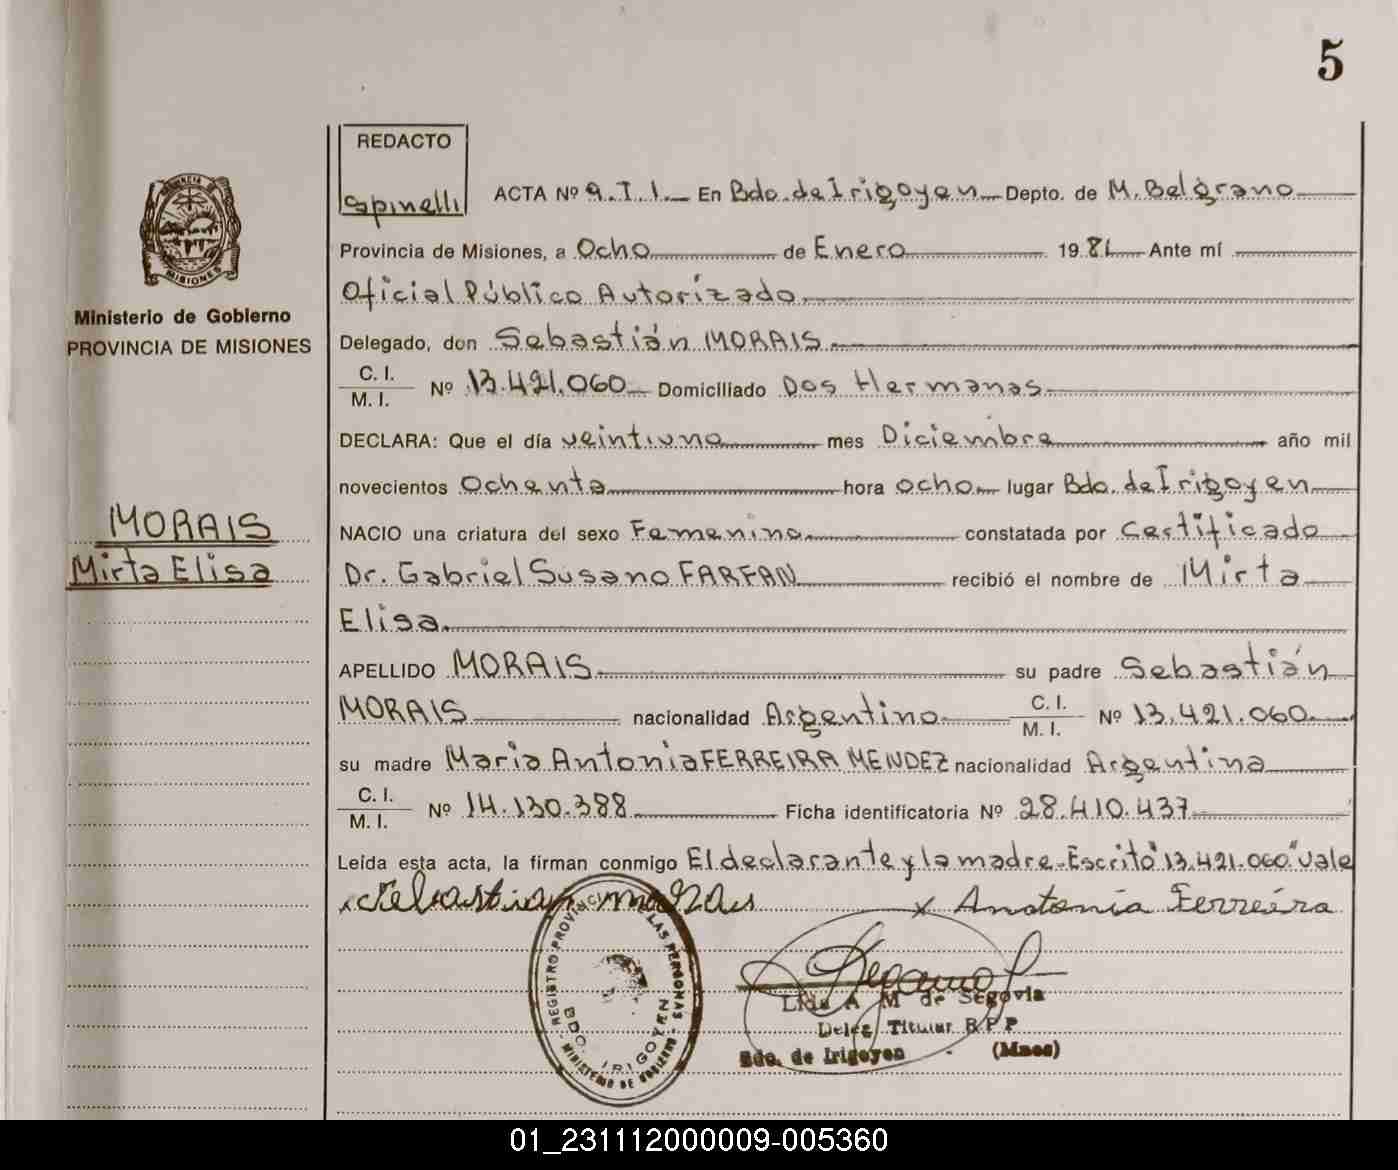 5
REDACTO
Spinelli
ACTA Nº 9.T.1. En Bdo. de Irigoyen Depto. de M. Belgrano
Provincia de Misiones, a Ocho de Enero 1981 Ante mí
Oficial Público Autorizado
Delegado, don Sebastián MORAIS
C. I.
M. I.
Nº 13.421.060 Domiciliado Dos Hermanas
DECLARA: Que el día veintiuno mes Diciembre año mil
novecientos Ochenta hora ocho lugar Bdo. de Irigoyen
NACIO una criatura del sexo Femenino constatada por Certificado
Dr. Gabriel Susano FARFAN recibió el nombre de Mirta
Elisa.
APELLIDO MORAIS su padre Sebastián
MORAIS nacionalidad Argentino C. I.
M. I.
Nº 13.421.060
su madre Maria Antonia FERREIRA MENDEZ nacionalidad Argentina
C. I.
M. I.
Nº 14.130.388 Ficha identificatoria Nº 28.410.437
Leída esta acta, la firman conmigo El declarante y la madre. Escrito "13.421.060" Vale
Sebastian Morais x Anotonia Ferreira
Ministerio de Gobierno
PROVINCIA DE MISIONES
MORAIS
Mirta Elisa
PROVINCIA DE
MISIONES
REGISTRO PROVINCIAL DE LAS PERSONAS
BDO. IRIGOYEN
MINISTERIO DE GOBIERNO
Lida A M de Segovia
Deleg Titular R P P
Bdo. de Irigoyen (Mnes)
01_231112000009-005360